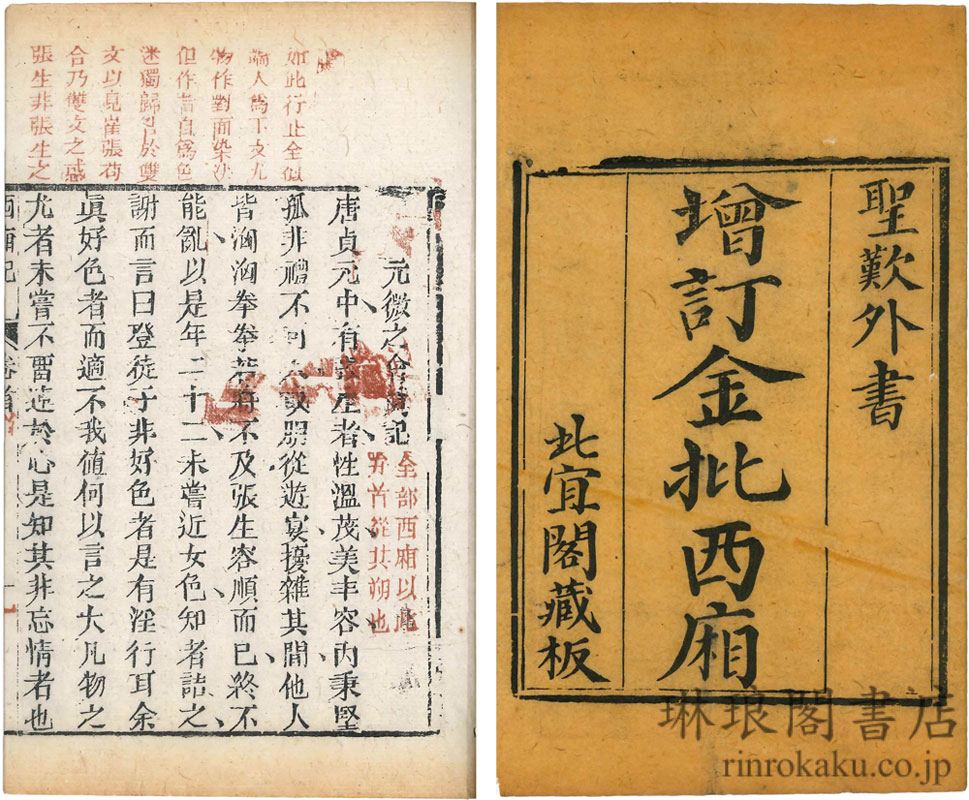 聖歎外書
增訂金批西廂
此宜閣藏板
如此行止全似
人為下文尤
物作對而
但作者自為色
迷獨歸咎於雙
文以見崔張苟
合乃雙文之惑
張生非張生之
元微之會眞記
全部西廂以此
為首從其朔也
唐貞元中有張生者性溫茂美丰容內秉堅
孤非禮不可入或朋從遊宴擾雜其間他人
皆洶洶拳拳若將不及張生容順而已終不
能亂以是年二十二未嘗近女色知者詰之
謝而言曰登徒子非好色者是有淫行耳余
眞好色者而適不我值何以言之大凡物之
尤者未嘗不畱連於心是知其非忘情者也
西廂記 卷首
琳琅閣書店
rinrokaku.co.jp